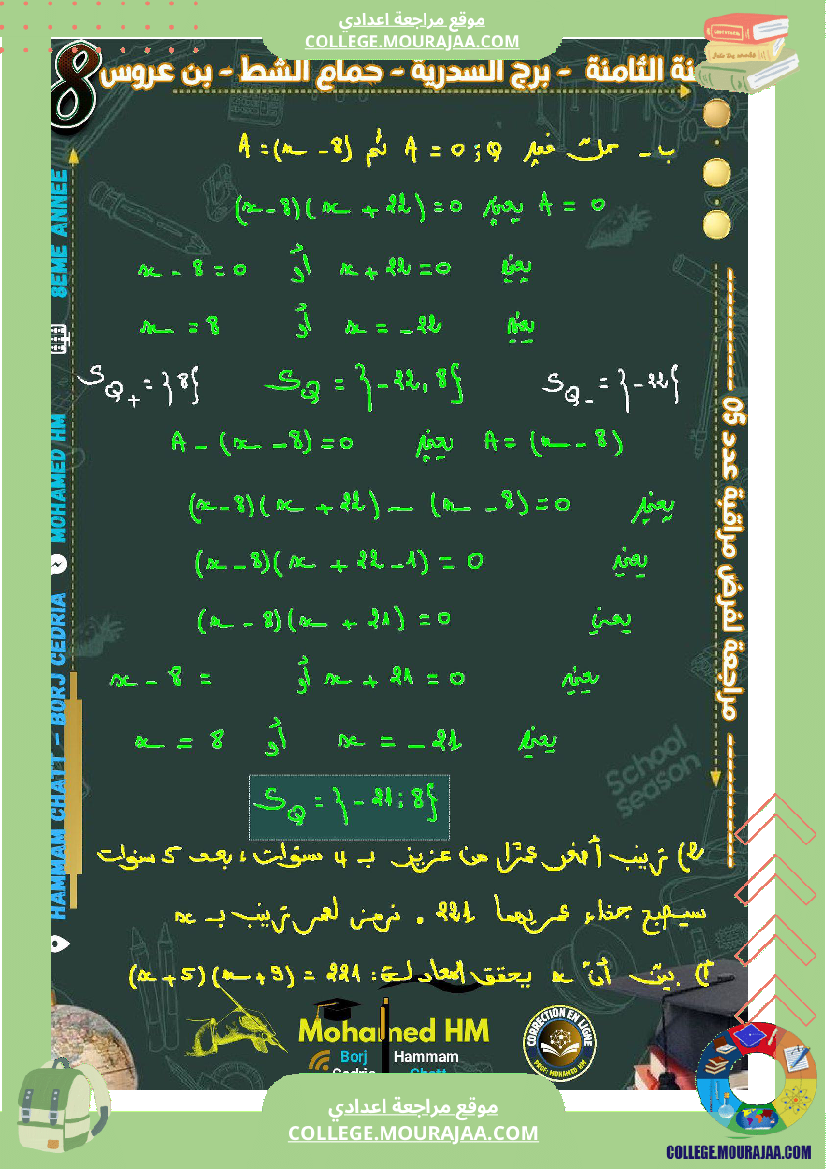 موقع مراجعة اعدادي
COLLEGE.MOURAJAA.COM
8
نة الثامنة - برج السدرية - حمام الشط - بن عروس
ب - حلّ في Q ; A = 0 ثم A = (x - 8)
A = 0 يعني (x-8)(x + 22) = 0
يعني x + 22 = 0 أو x - 8 = 0
يعني x = -22 أو x = 8
S_Q+ = {8} S_Q = {-22, 8} S_Q- = {-22}
A = (x - 8) يعني A - (x - 8) = 0
يعني (x-8)(x + 22) - (x - 8) = 0
يعني (x-8)(x + 22 - 1) = 0
يعني (x - 8)(x + 21) = 0
يعني x + 21 = 0 أو x - 8 =
يعني x = -21 أو x = 8
S_Q = {-21 ; 8}
2) زينب أصغر عمرا من عزيز بـ 4 سنوات، بعد 5 سنوات
سيصبح جذاء عمريهما 221 . نرمز لعمر زينب بـ x
أ) بيّن أنّ x يحقق المعادلة : (x+5)(x+9) = 221
8EME ANNEE
MOHAMED HM
HAMMAM CHATT - BORJ CEDRIA
مراجعة لفرض مراقبة عدد 05
School season
Mohamed HM
Borj Hammam
Cedria Chatt
CORRECTION EN LIGNE
PROF. MOHAMED HM
موقع مراجعة اعدادي
COLLEGE.MOURAJAA.COM
COLLEGE.MOURAJAA.COM